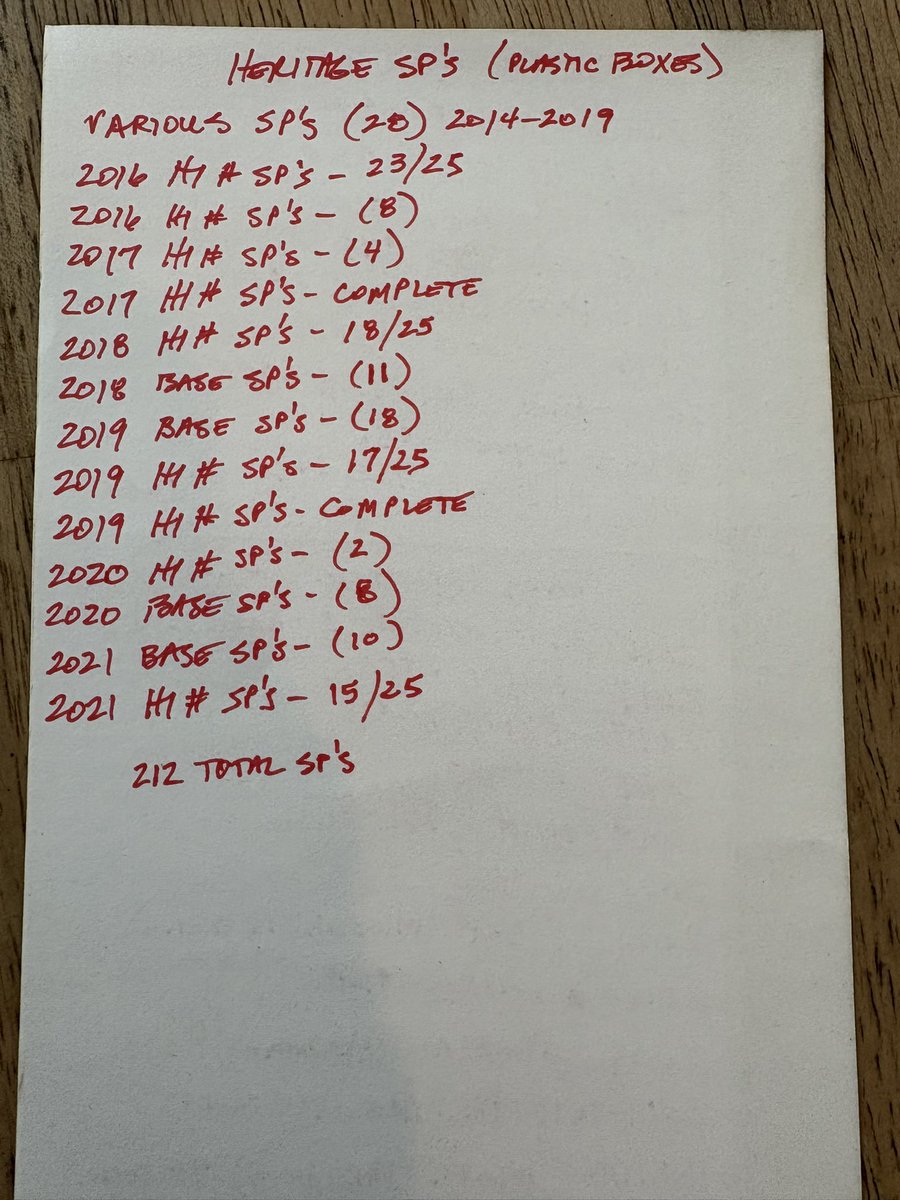 HERITAGE SP'S (PLASTIC BOXES)
VARIOUS SP'S (28) 2014-2019
2016 HI # SP'S - 23/25
2016 HI # SP'S - (8)
2017 HI # SP'S - (4)
2017 HI # SP'S - COMPLETE
2018 HI # SP'S - 18/25
2018 BASE SP'S - (11)
2019 BASE SP'S - (18)
2019 HI # SP'S - 17/25
2019 HI # SP'S - COMPLETE
2020 HI # SP'S - (2)
2020 BASE SP'S - (8)
2021 BASE SP'S - (10)
2021 HI # SP'S - 15/25
212 TOTAL SP'S